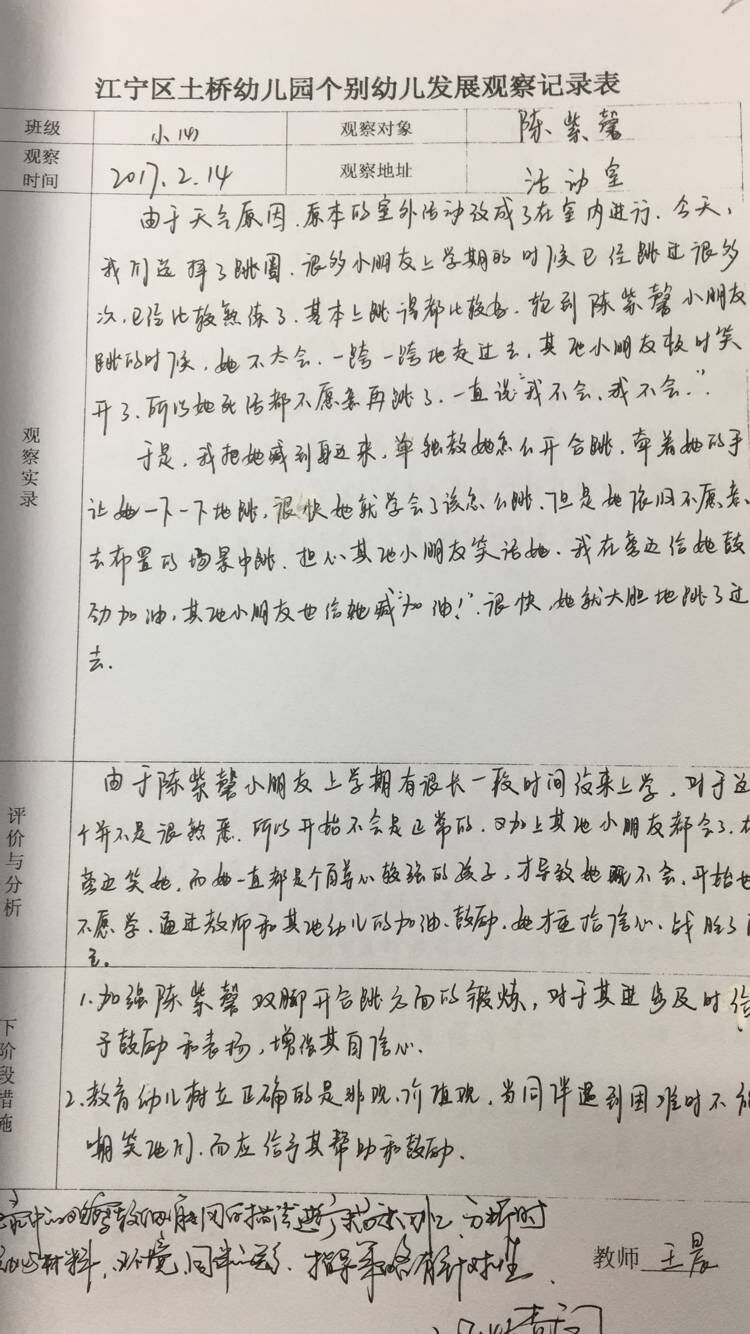 江宁区土桥幼儿园个别幼儿发展观察记录表
班级 小(四) 观察对象 陈紫馨
观察时间 2017.2.14 观察地址 活动室
观察实录
由于天气原因,原本的室外活动改成了在室内进行.今天,
我们选择了跳圈.很多小朋友上学期的时候已经跳过很多
次,已经比较熟练了.基本上跳得都比较好.轮到陈紫馨小朋友
跳的时候,她不太会.一跨一跨地走过去,其他小朋友顿时笑
开了.所以她死活都不愿意再跳了.一直说"我不会,我不会."
于是,我把她喊到身边来,单独教她怎么开合跳,牵着她的手
让她一下一下地跳,很快她就学会了该怎么跳.但是她依旧不愿意
去布置的场景中跳.担心其他小朋友笑话她.我在旁边给她鼓
劲加油,其他小朋友也给她喊"加油!".很快,她就大胆地跳了过
去.
评价与分析
由于陈紫馨小朋友上学期有很长一段时间没来上学,对于这
个并不是很熟悉.所以开始不会是正常的.又加上其他小朋友都会了.在
旁边笑她,而她一直都是个自尊心较强的孩子,才导致她既不会,开始也
不愿学.通过教师和其他幼儿的加油、鼓励,她才重拾信心,战胜了
下阶段措施
1.加强陈紫馨双脚开合跳方面的锻炼,对于其进步及时给
予鼓励和表扬,增强其自信心.
2.教育幼儿树立正确的是非观,价值观,当同伴遇到困难时不
嘲笑他们.而应给予其帮助和鼓励.
分析时
材料、环境、同伴 指导策略有针对性.
教师 王晨